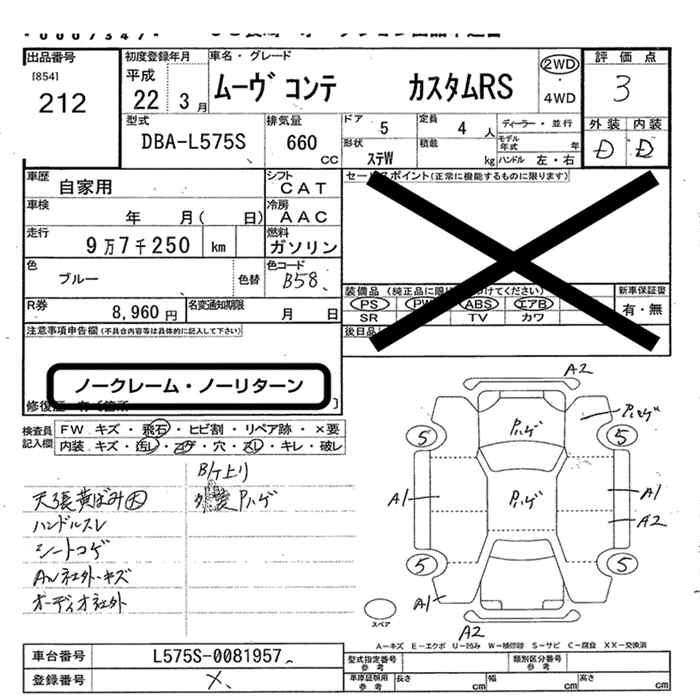 出品番号
[854]
212
初度登録年月
平成
22 3 月
車名・グレード
ムーヴ コンテ カスタムRS
2WD
・
4WD
評 価 点
3
外装 内装
D D
型式
DBA-L575S
排気量
660
CC
ドア
5
定員
4 人
形状
ステW
積載
kg
ディーラー・並行
モデル年式 年
ハンドル 左・右
車歴
自家用
シフト
CAT
車検
年 月( 日)
冷房
AAC
走行
9万7千250 km
燃料
ガソリン
色
ブルー
色替
色コード
B58
R券
8,960 円
名変通知期限
月 日
セールスポイント(正常に機能するものに限ります)
装備品 (純正品に限り けてください)
PS PW ABS エアB
SR TV カワ
新車保証書
有・無
後日品
注意事項申告欄(不具合内容等は具体的に記入して下さい)
ノークレーム・ノーリターン
修復歴 有〔箇所 〕
検査員記入欄
FW キズ・飛石・ヒビ割・リペア跡・×要
内装 キズ・汚レ・コゲ・穴・スレ・キレ・破レ
B/ケ上り
天張黄ばみ大
装Pハゲ
ハンドルスレ
シートコゲ
AW社外・キズ
オーディオ社外
A2
Pハゲ
Pハゲ
5 5
A1
Pハゲ
A1
A2
5 5
A1
A2
スペア
A-キズ E-エクボ U-凹み W-補修跡 S-サビ C-腐食 XX-交換済
車台番号
L575S-0081957
登録番号
×
型式指定番号
参考
類別区分番号
参考
車庫証明用
参考
長さ cm
幅 cm
高さ cm